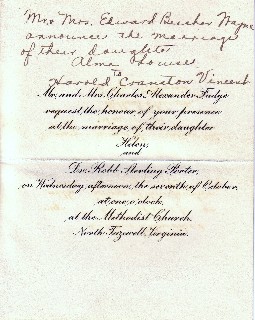 Mr & Mrs. Edward Beecher
announce the marriage
of their daughter
Alma Louise
to
Harold Cranston Vincent
Mr. and Mrs. Charles Alexander Fudge
request the honour of your presence
at the marriage of their daughter
Helen
and
Dr. Robb Sterling
on Wednesday afternoon, the seventh of October,
at one o'clock,
at the Methodist Church,
North Tazewell, Virginia.